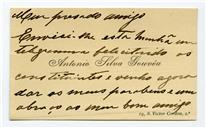 Meu presado amigo
Enviei-lhe esta manhã um
telegrama felicitando os
Antonio Silva Gouveia
constituintes e venho agora
dar os meus parabens e um
abraço ao meu bom amigo
19, R. Victor Cordon, 2.º